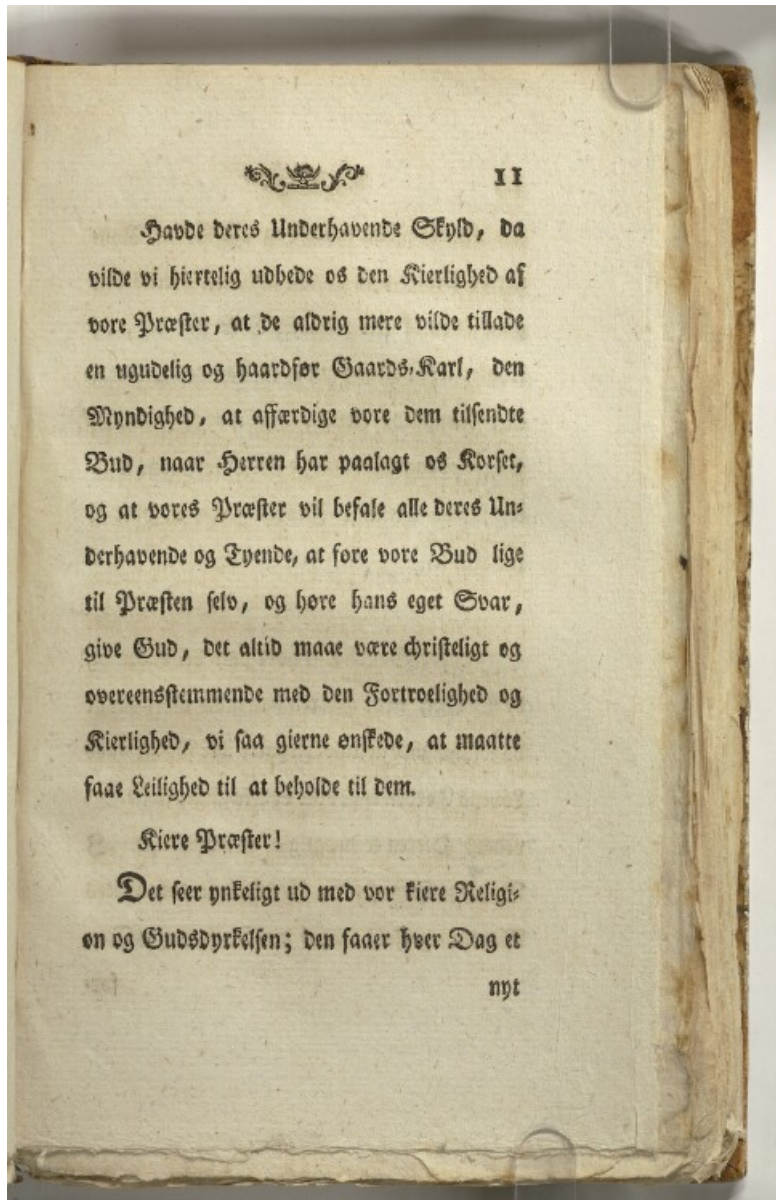 11
Havde deres Underhavende Skyld, da
vilde vi hiertelig udbede os den Kierlighed af
vore Præster, at de aldrig mere vilde tillade
en ugudelig og haardfør Gaards-Karl, den
Myndighed, at affærdige vore dem tilsendte
Bud, naar Herren har paalagt os Korset,
og at vores Præster vil befale alle deres Un-
derhavende og Tyende, at føre vore Bud lige
til Præsten selv, og høre hans eget Svar,
give Gud, det altid maae være christeligt og
overeensstemmende med den Fortroelighed og
Kierlighed, vi saa gierne ønskede, at maatte
faae Leilighed til at beholde til dem.
Kiere Præster!
Det seer ynkeligt ud med vor kiere Religi-
on og Gudsdyrkelsen; den faaer hver Dag et
nyt